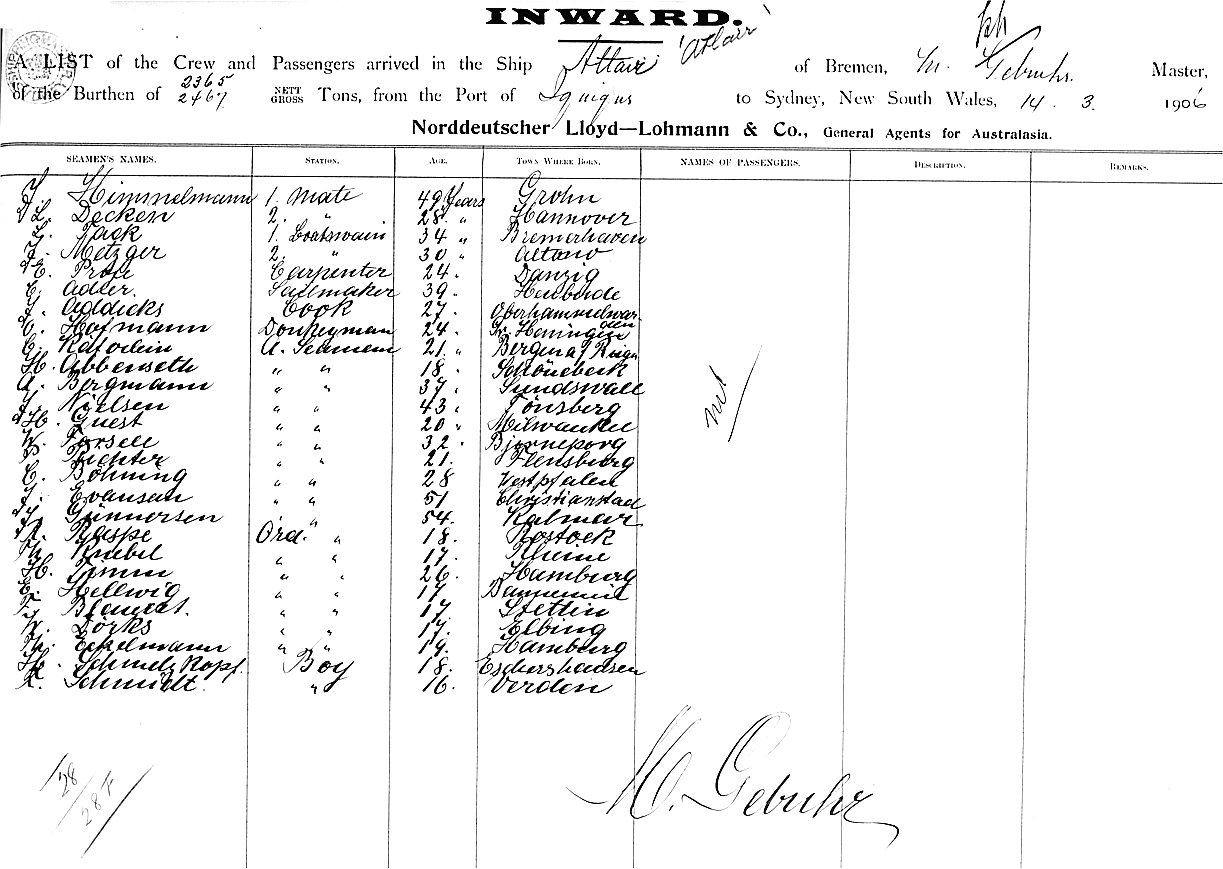 INWARD.
A LIST of the Crew and Passengers arrived in the Ship Altair 'Altair' of Bremen, M. Gebruhs. Master,
of the Burthen of 2365 2467 NETT GROSS Tons, from the Port of Iquique to Sydney, New South Wales, 14. 3. 1906
Norddeutscher Lloyd—Lohmann & Co., General Agents for Australasia.
SEAMEN'S NAMES. STATION. AGE. TOWN WHERE BORN. NAMES OF PASSENGERS. DESCRIPTION. REMARKS.
Himmelmann 1. Mate 49 Years Grohn
L. Decken 2. " 28 " Hannover
Tack 1. Boatswain 34 " Bremerhaven
Metzger 2. " 30 " Altona
E. Carpenter 24 " Danzig
C. Adler. Sailmaker 39 "
Addicks Cook 27 "
Hofmann Donkeyman 24 "
C. A. Seamen 21 "
H. Abbenseth " " 18 " Schönebeck
A. Bergmann " " 37 " Sundswall
Nielsen " " 43 " Tönsberg
H. Guest " " 20 " Milwaukee
W. Forsell " " 32 " Bjorneporg
Richter " " 21. Flensburg
C. Böhning " " 28 Westfalen
Evansan " " 51 Christianstad
Gunnersen " " 54. Kalmar
R. Raspe Ord. " 18. Rostock
Th. Kniebel " " 17. Rheine
H. Timm " " 26. Hamburg
E. Hellwig " " 17
" " 17. Stettin
W. Dörks " " 17. Elbing
Th. Eckelmann " " 19. Hamburg
H. Schmelzkopf. Boy 18. Eschershausen
Schmidt. " 16. Verden
nil
28
28 F
M. Gebuhr